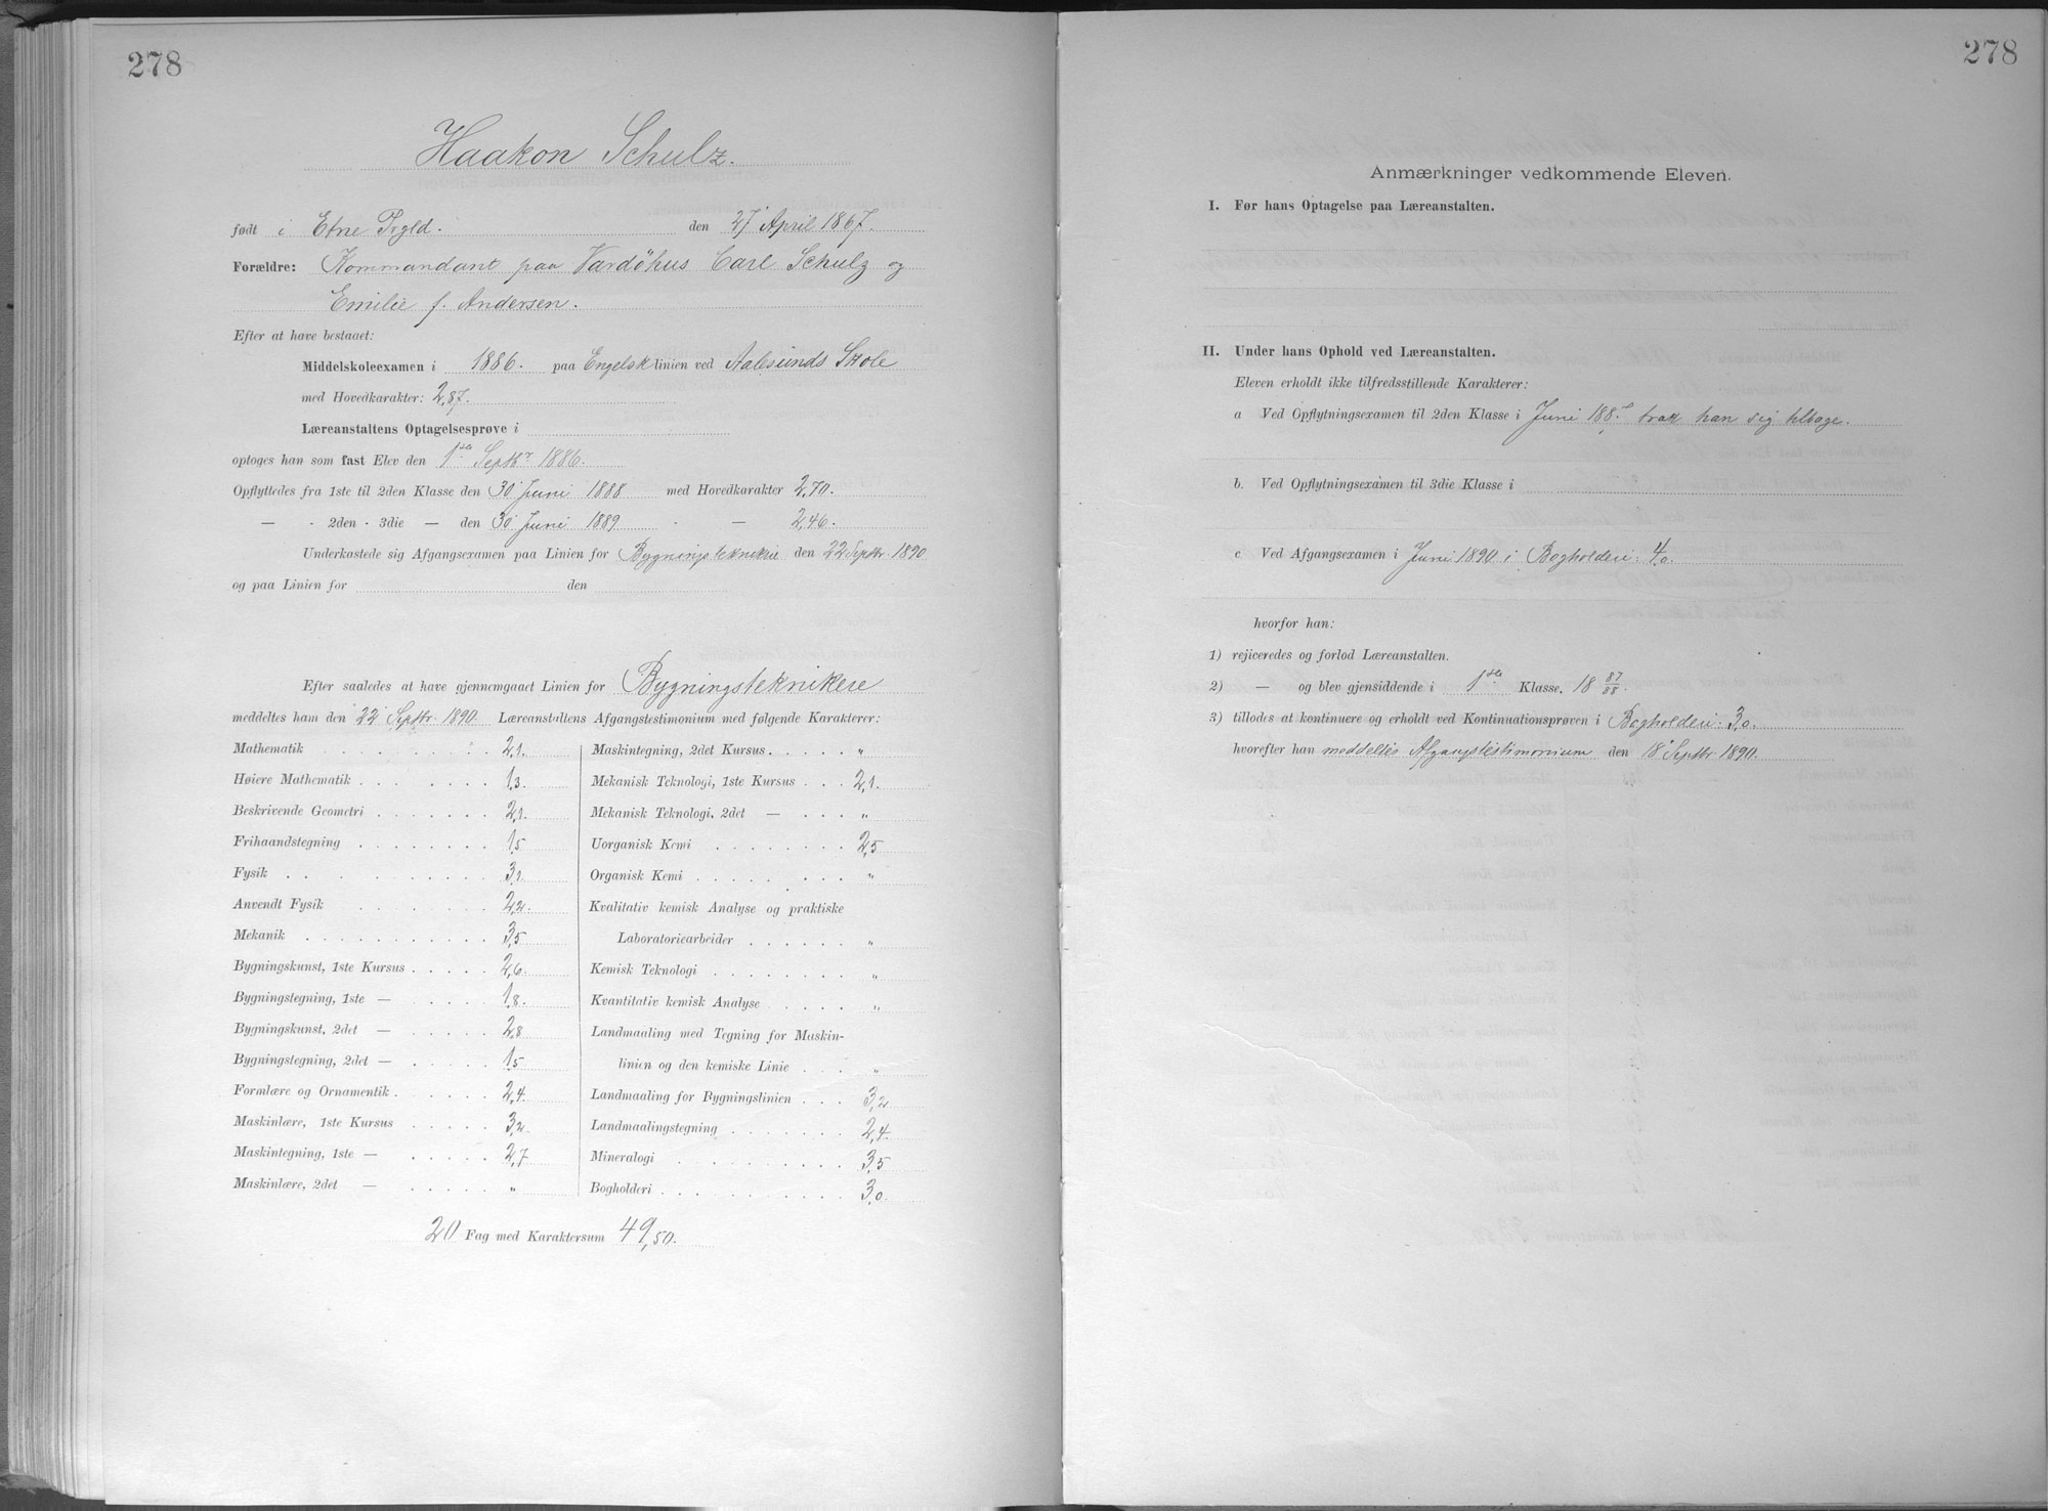 278
Haakon Schulz.
født i Etne Prgld. den 27 April 1867.
Forældre: Kommandant paa Vardöhus Carl Schulz og
Emilie f. Andersen.
Efter at have bestaaet:
Middelskoleexamen i 1886. paa Engelsklinien ved Aalesunds Skole
med Hovedkarakter: 2,87.
Læreanstaltens Optagelsesprøve i
optoges han som fast Elev den 1ste Septbr 1886.
Opflyttedes fra 1ste til 2den Klasse den 30 Juni 1888 med Hovedkarakter 2,70.
— - 2den - 3die — den 30 Juni 1889 - — 2,46.
Underkastede sig Afgangsexamen paa Linien for Bygningsteknikere den 22 Septbr. 1890
og paa Linien for den
Efter saaledes at have gjennemgaaet Linien for Bygningsteknikere
meddeltes ham den 22 Septbr. 1890 Læreanstaltens Afgangstestimonium med følgende Karakterer:
Mathematik 2,1.
Høiere Mathematik 1,3.
Beskrivende Geometri 2,1.
Frihaandstegning 1,5
Fysik 3,1.
Anvendt Fysik 2,2.
Mekanik 3,5
Bygningskunst, 1ste Kursus 2,6.
Bygningstegning, 1ste — 1,8.
Bygningskunst, 2det — 2,8
Bygningstegning, 2det — 1,5
Formlære og Ornamentik 2,4.
Maskinlære, 1ste Kursus 3,2.
Maskintegning, 1ste — 2,7
Maskinlære, 2det — "
Maskintegning, 2det Kursus "
Mekanisk Teknologi, 1ste Kursus 2,1.
Mekanisk Teknologi, 2det — "
Uorganisk Kemi 2,5
Organisk Kemi "
Kvalitativ kemisk Analyse og praktiske
Laboratoriearbeider "
Kemisk Teknologi "
Kvantitativ kemisk Analyse "
Landmaaling med Tegning for Maskin-
linien og den kemiske Linie "
Landmaaling for Bygningslinien 3,2
Landmaalingstegning 2,4.
Mineralogi 3,5
Bogholderi 3,0.
20 Fag med Karaktersum 49,50.
278
Anmærkninger vedkommende Eleven.
I. Før hans Optagelse paa Læreanstalten.
II. Under hans Ophold ved Læreanstalten.
Eleven erholdt ikke tilfredsstillende Karakterer:
a Ved Opflytningsexamen til 2den Klasse i Juni 188 trak han sig tilbage.
b. Ved Opflytningsexamen til 3die Klasse i
c Ved Afgangsexamen i Juni 1890 i Bogholderi: 4,0.
hvorfor han:
1) rejiceredes og forlod Læreanstalten.
2) — og blev gjensiddende i 1ste Klasse. 18 87/88.
3) tillodes at kontinuere og erholdt ved Kontinuationsprøven i Bogholderi: 3,0.
hvorefter han meddeltes Afgangstestimonium den 18 Septbr 1890.